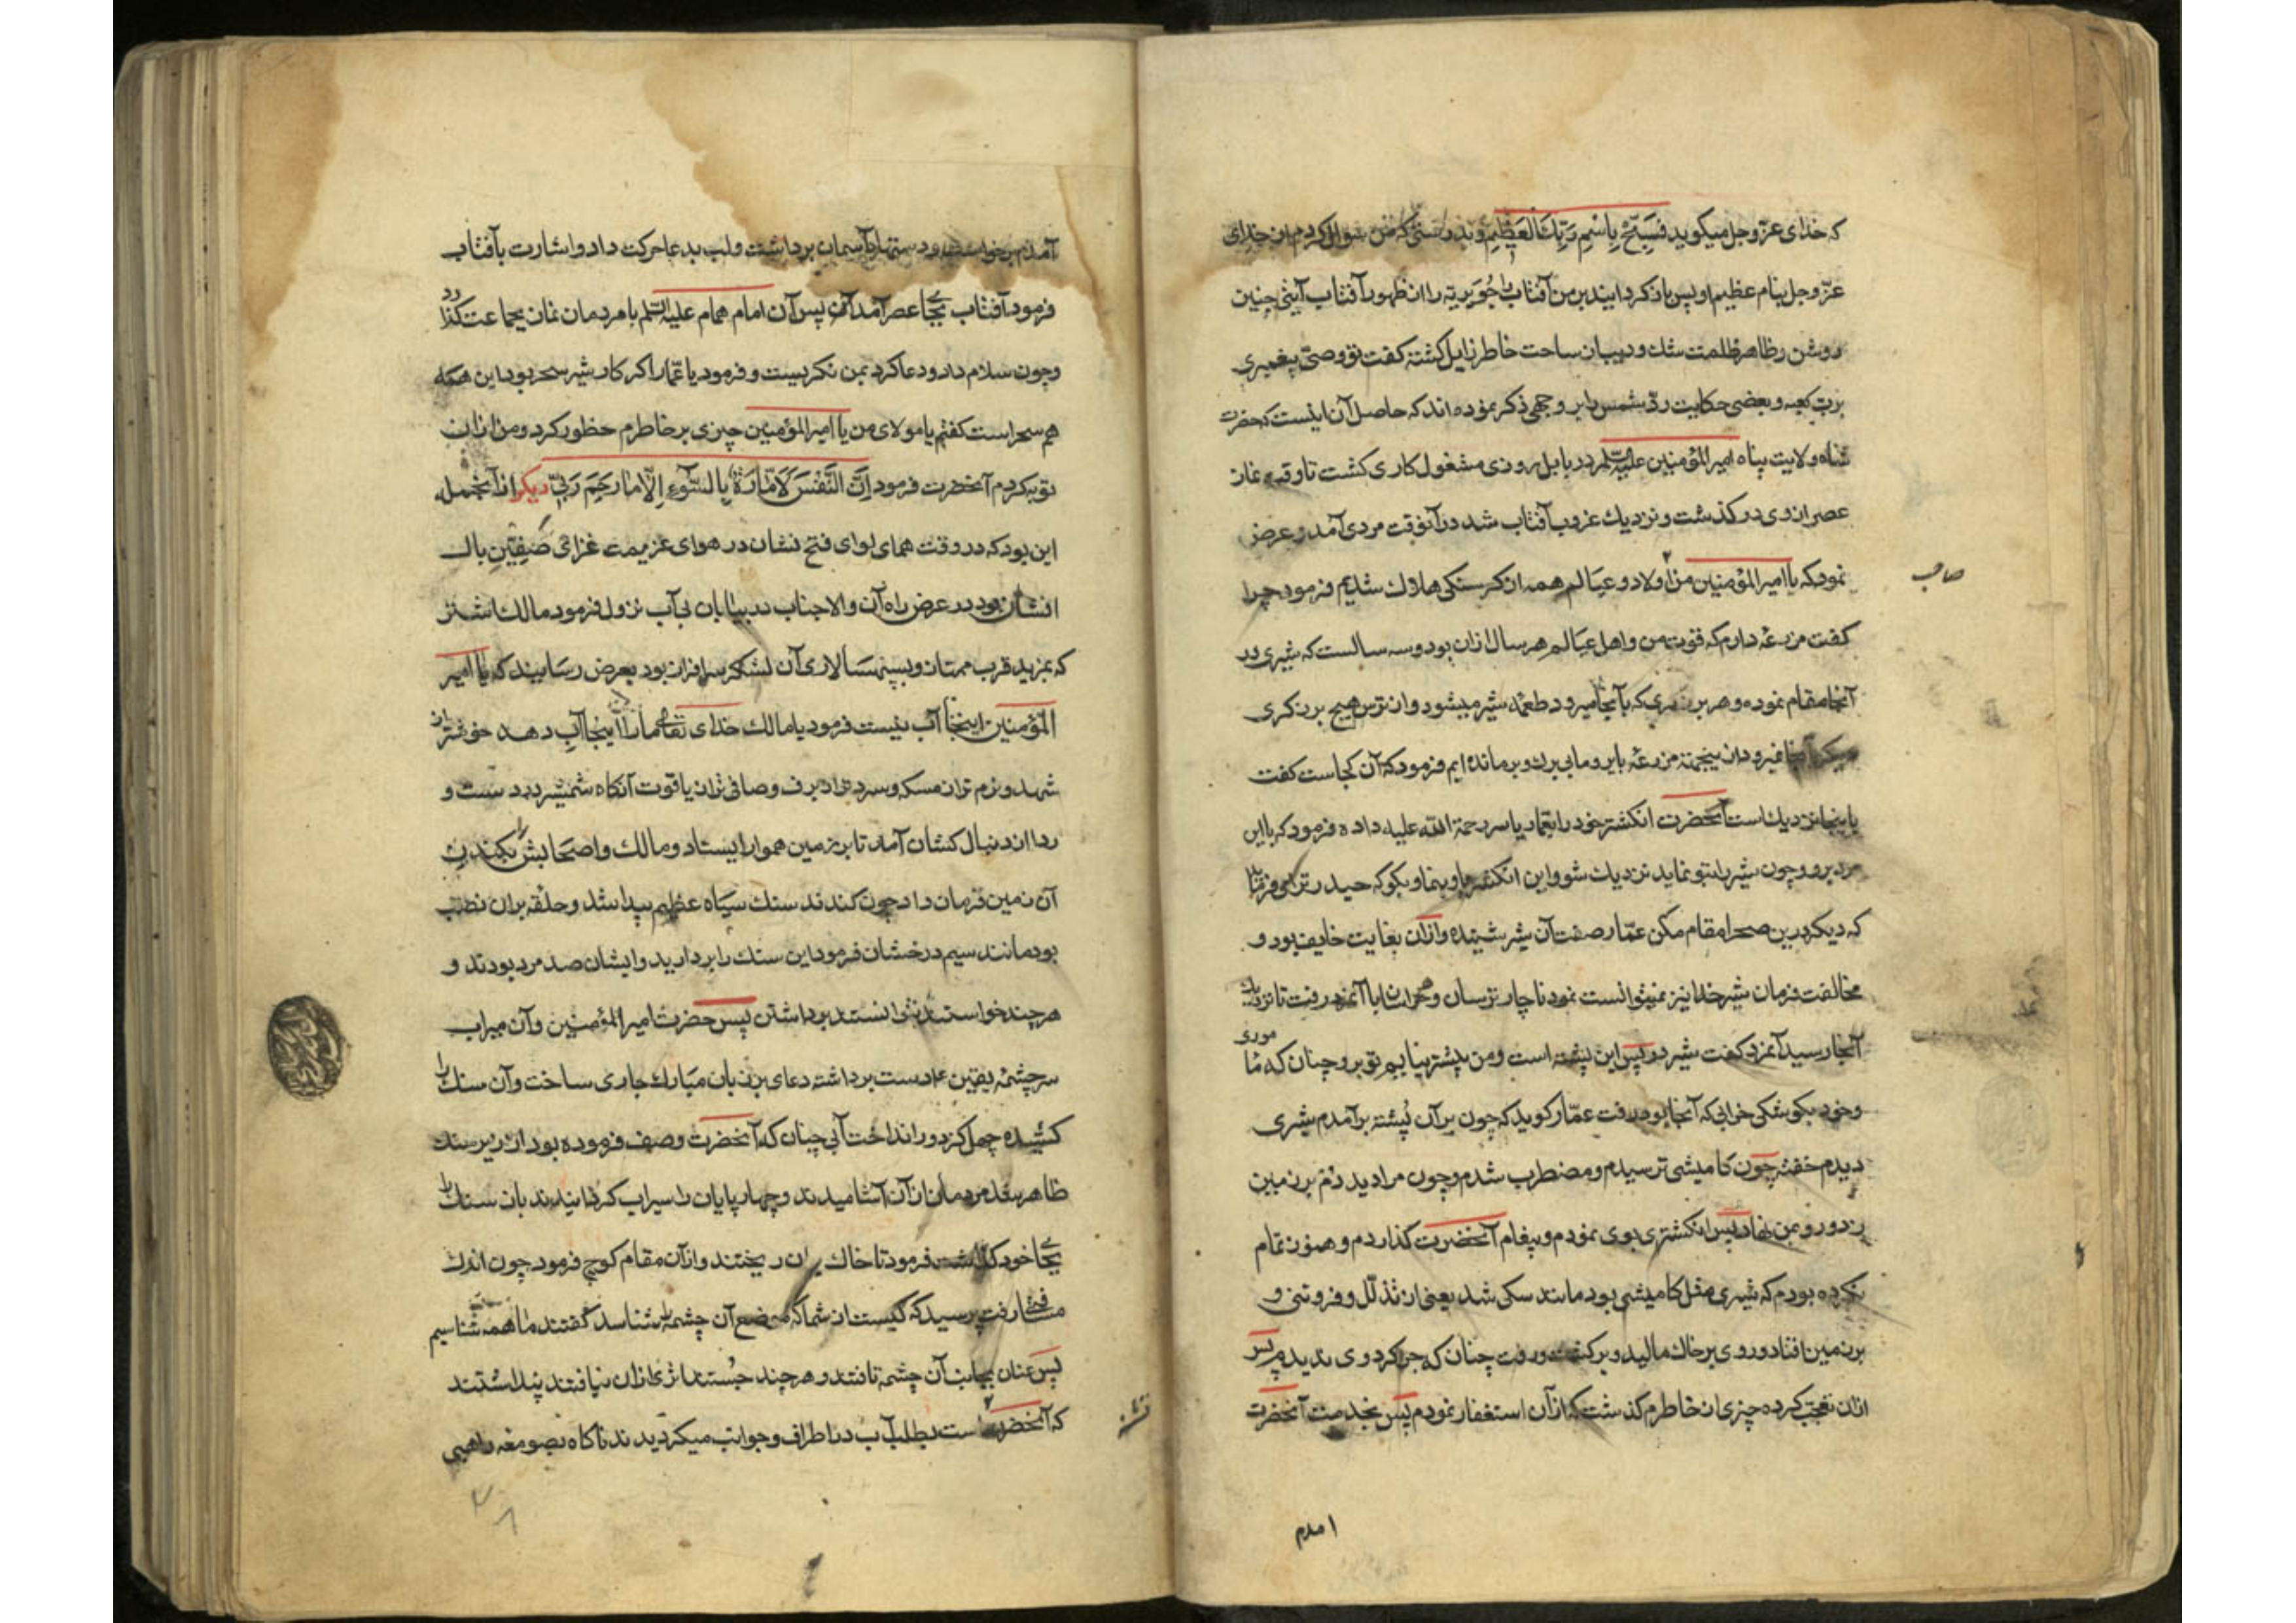 که خدای عزّ و جل میکوید فَسَبِّحْ بِاسْمِ رَبِّكَ الْعَظِيمِ و بدرستی که من سوال کردم از خدای
عزّ و جل بنام عظیم او پس باز کردانیند بر من آفتاب را جُوَیریَه را از ظهور آفتاب آیتی چنین
روشن رظاهر ظلمت شك و دیب از ساحت خاطر زایل کشته کفت تو وصیّ پیغمبری
بربّ کعبه و بعضی حکایت ردّ شمس را بر وجهی ذکر نموده اند که حاصل آن اینست که حضرت
شاه ولایت پناه امیر المؤمنین علیه السّلم در بابل روزی مشغول کاری کشت تا وقت نماز
عصر از وی در کذشت و نزدیك غروب آفتاب شد در آنوقت مردی آمد و عرض
نمود که یا امیر المؤمنین من و اولاد و عیالم همه از کرسنکی هلاك شدیم فرمود چرا
صاحب
کفت مزرعهٔ دارم که قوت من و اهل عیالم هر سال ازان بود و سه سالست که شیری در
آنجا مقام نموده و هر برزکری که بآنجا میرود طعمهٔ شیر میشود و از ترس هیچ برزکری
آنجا نمیرود ازینجهة مزرعه بایر و ما بی برك و بر مانده ایم فرمود که آن کجاست کفت
باینجا نزدیك است آنحضرت انکشتر خود را بعمّار یاسر رحمة الله علیه داده فرمود که با این
مرد برو و چون شیر را بتو نماید نزدیك شو و این انکشتر باو بنما و بکو که حیدر ترا می فرماید
که دیکر درین صحرا مقام مکن عمّار صفت آن شیر شنیده و ازان بغایت خایف بود و
مخالفت فرمان شیر خدا نیز نمیتوانست نمود ناچار ترسان و هراسان با آنمرد رفت تا نزدیك
آنجا رسید آنمرد کفت شیر در پس این پشته است و من پیشتر نیایم تو برو چنان که مأموری
و خود بکوشکی خرابی که آنجا بود رفت عمّار کوید که چون بر آن پُشته بر آمدم شیری
دیدم خفته چون کامیشی ترسیدم و مضطرب شدم و چون مرا دید دُم بر زمین
زد و رو بمن نهاد پس انکشتری بوی نمودم و پیغام آنحضرت کذاردم و هنوز تمام
نکرده بودم که شیری مثل کامیشی بود مانند سکی شد یعنی از تذلّل و فروتنی و
بر زمین افتاد و روی بر خاك مالید و بر کشت و رفت چنان که دیکر وی ندیدم پس
ازان تعجب کرده چیزی از خاطرم کذشت که از آن استغفار نمودم پس بخدمت آنحضرت
امدم
آمدم برخواست و دستها بآسمان برداشت و لب بدعا حرکت داد و اشارت بآفتاب
فرمود آفتاب بجای عصر آمد پس آن امام همام علیه السّلم با مردمان نماز بجماعت کذارد
و چون سلام داد و دعا کرد بمن نکریست و فرمود یا عمّار اکر کار شیر سحر بود این همه
هم سحر است کفتم یا مولای من یا امیر المؤمنین چیزی بر خاطرم خطور کرد و من ازان
توبه کردم آنحضرت فرمود اِنَّ النَّفْسَ لَاَمَّارَةٌ بِالسُّوءِ اِلَّا مَا رَحِمَ رَبِّی دیکر از آنجمله
این بود که در وقت همای لوای فتح نشان در هوای عزیمت غزای صِفّین بال
افشان بود در عرض راه آن والاجناب در بیابان بی آب نزول فرمود مالك اشتر
که بمزید قرب ممتاز و بسپهسالاری آن لشکر سرافراز بود بعرض رسانید که یا امیر
المؤمنین اینجا آب نیست فرمود یا مالك خدای تعالی ما را اینجا آب دهد خوشتر از
شهد و نرم تر از مسکه و سرد تر از برف و صافی تر از یاقوت آنکاه شمشیر در دست و
ردا از دنبال کشان آمد تا بر زمین هموار ایستاد و مالك و اصحابش را بکندن
آن زمین فرمان داد چون کندند سنك سیاه عظیم پیدا شد و حلقه بران نصب
بود مانند سیم درخشان فرمود این سنك را بردارید و ایشان صد مرد بودند و
هر چند خواستند نتوانستند برداشتن پس حضرت امیر المؤمنین و آن میراب
سرچشمهٔ یقین دست برداشته دعای بر زبان مبارك جاری ساخت و آن سنك را
کشیده چهل کز دور انداخت آبی چنان که آنحضرت وصف فرموده بود از زیر سنك
ظاهر شد مردمان از آن آشامیدند و چهارپایان را سیراب کردانیدند باز سنك را
بجای خود کذاشت فرمود تا خاك بران ریختند و ازان مقام کوچ فرمود چون اندك
مسافتی رفت پرسید که کیست از شما که موضع آن چشمه را شناسد کفتند ما همه شناسیم
پس عنان بجانب آن چشمه تافتند و هر چند جُستند اثری ازان نیافتند پنداشتند
که آنحضرت تشنه است بطلب آب در اطراف و جوانب میکردیدند ناکاه بصومعه راهبی